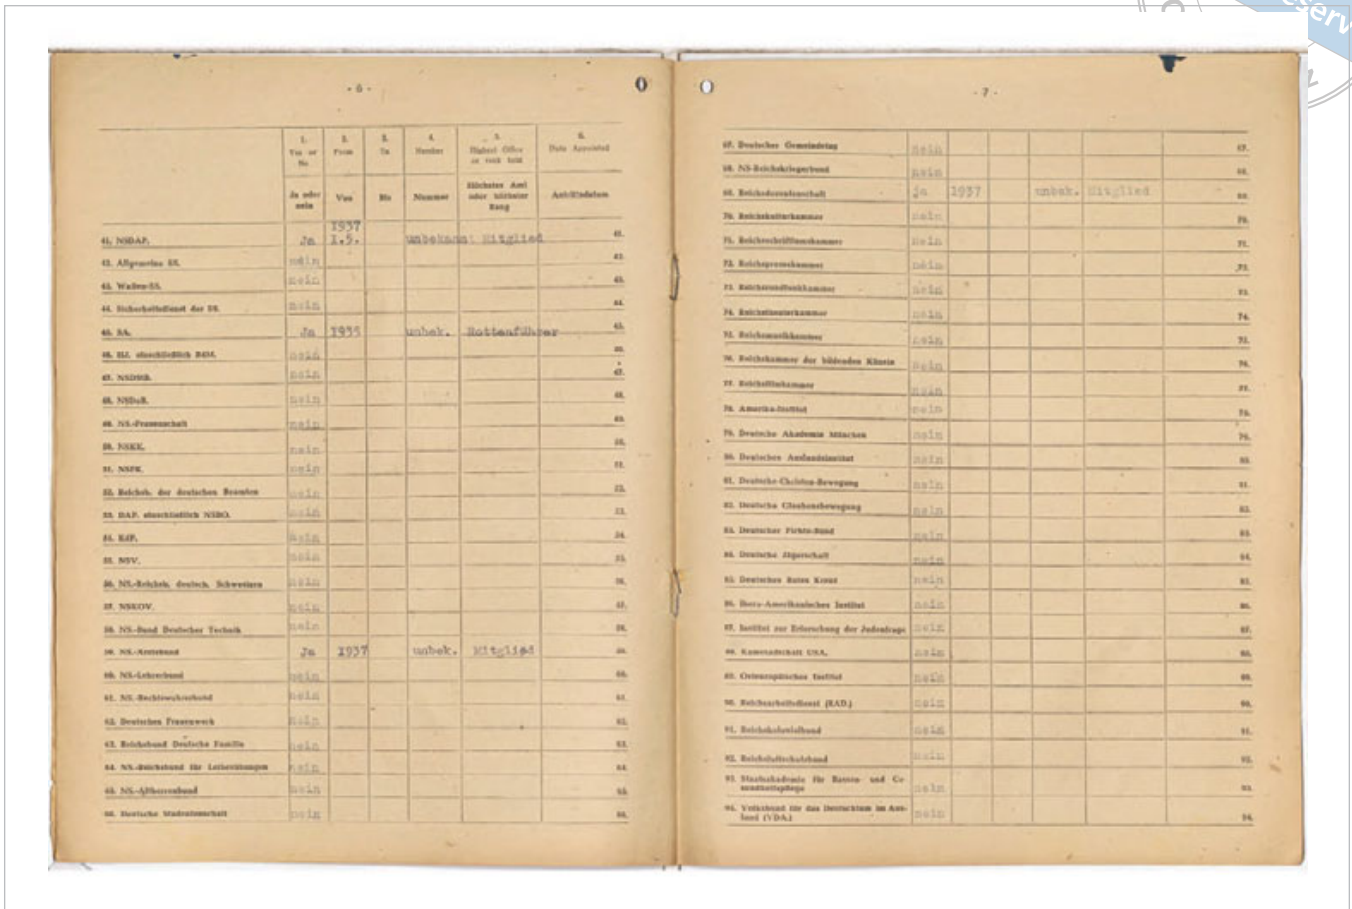 - 6 -
1. 2. 3. 4. 5. 6.
Yes or No From To Number Highest Office or rank held Date Appointed
Ja oder nein Von Bis Nummer Höchstes Amt oder höchster Rang Antrittsdatum
41. NSDAP. Ja 1937 1.5. unbekannt Mitglied 41.
42. Allgemeine SS. nein 42.
43. Waffen-SS. nein 43.
44. Sicherheitsdienst der SS. nein 44.
45. SA. Ja 1935 unbek. Rottenführer 45.
46. HJ. einschließlich BdM. nein 46.
47. NSDStB. nein 47.
48. NSDoB. nein 48.
49. NS.-Frauenschaft nein 49.
50. NSKK. nein 50.
51. NSFK. nein 51.
52. Reichsb. der deutschen Beamten nein 52.
53. DAF. einschließlich NSBO. nein 53.
54. KdF. nein 54.
55. NSV. nein 55.
56. NS.-Reichsb. deutsch. Schwestern nein 56.
57. NSKOV. nein 57.
58. NS.-Bund Deutscher Technik nein 58.
59. NS.-Ärztebund Ja 1937 unbek. Mitglied 59.
60. NS.-Lehrerbund nein 60.
61. NS.-Rechtswahrerbund nein 61.
62. Deutsches Frauenwerk nein 62.
63. Reichsbund Deutsche Familie nein 63.
64. NS.-Reichsbund für Leibesübungen nein 64.
65. NS.-Altherrenbund nein 65.
66. Deutsche Studentenschaft nein 66.
- 7 -
67. Deutscher Gemeindetag nein 67.
68. NS-Reichskriegerbund nein 68.
69. Reichsdozentenschaft ja 1937 unbek. Mitglied 69.
70. Reichskulturkammer nein 70.
71. Reichsschrifttumskammer nein 71.
72. Reichspressekammer nein 72.
73. Reichsrundfunkkammer nein 73.
74. Reichstheaterkammer nein 74.
75. Reichsmusikkammer nein 75.
76. Reichskammer der bildenden Künste nein 76.
77. Reichsfilmkammer nein 77.
78. Amerika-Institut nein 78.
79. Deutsche Akademie München nein 79.
80. Deutsches Auslandsinstitut nein 80.
81. Deutsche-Christen-Bewegung nein 81.
82. Deutsche Glaubensbewegung nein 82.
83. Deutscher Fichte-Bund nein 83.
84. Deutsche Jägerschaft nein 84.
85. Deutsches Rotes Kreuz nein 85.
86. Ibero-Amerikanisches Institut nein 86.
87. Institut zur Erforschung der Judenfrage nein 87.
88. Kameradschaft USA. nein 88.
89. Osteuropäisches Institut nein 89.
90. Reichsarbeitsdienst (RAD.) nein 90.
91. Reichskolonialbund nein 91.
92. Reichsluftschutzbund nein 92.
93. Staatsakademie für Rassen- und Ge-
sundheitspflege nein 93.
94. Volksbund für das Deutschtum im Aus-
land (VDA.) nein 94.